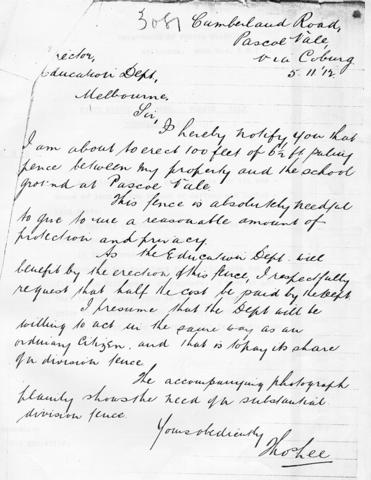 3081 Cumberland Road,
Pascoe Vale,
via Coburg
5.11.'12
rector,
Education Dept,
Melbourne,
Sir,
I hereby notify you that
I am about to erect 100 feet of 6½ ft paling
fence between my property and the school
ground at Pascoe Vale
This fence is absolutely needful
to give to me a reasonable amount of
protection and privacy.
As the Education Dept. will
benefit by the erection of this fence, I respectfully
request that half the cost be paid by the Dept
I presume that the Dept will be
willing to act in the same way as an
ordinary citizen. and that is to pay its share
of a division fence
The accompanying photograph
plainly shows the need of a substantial
division fence.
Yours obediently
Thos Lee